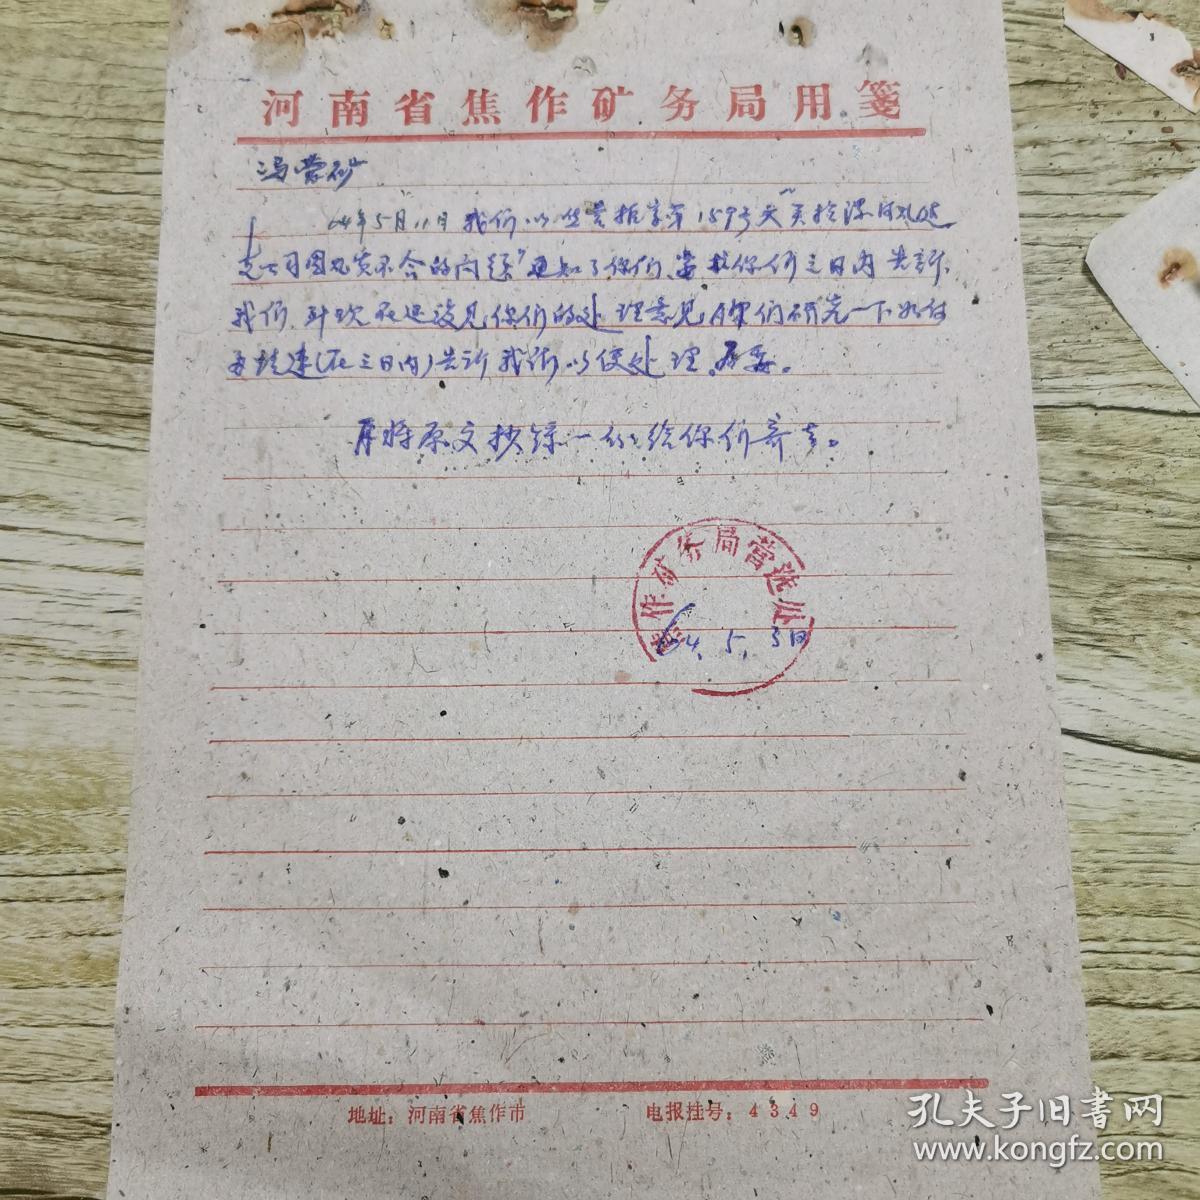 河南省焦作矿务局用笺
冯营矿
64年5月11日我们以 第159号文"关于
公司因 货不合的问题"通知了你们,当 你们三日内告诉
我们,到现在还没见你们的处理意见 你们研究一下如何
速(在三日内)告诉我们以便处理。为要。
再将原文抄录一份给你们寄去。
焦作矿务局营
64.5.3日
地址:河南省焦作市 电报挂号:4349
孔夫子旧书网
www.kongfz.com